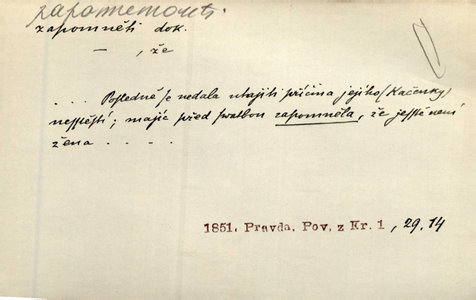 zapomenouti
zapomněti dok.
— , že
. . . Posledně se nedala utajiti příčina jejího (Kačenky)
nesstěstí; majíc před svatbou zapomněla, že jesstě není
žena . . . . .
1851. Pravda, Pov. z Kr. 1 , 29. 14